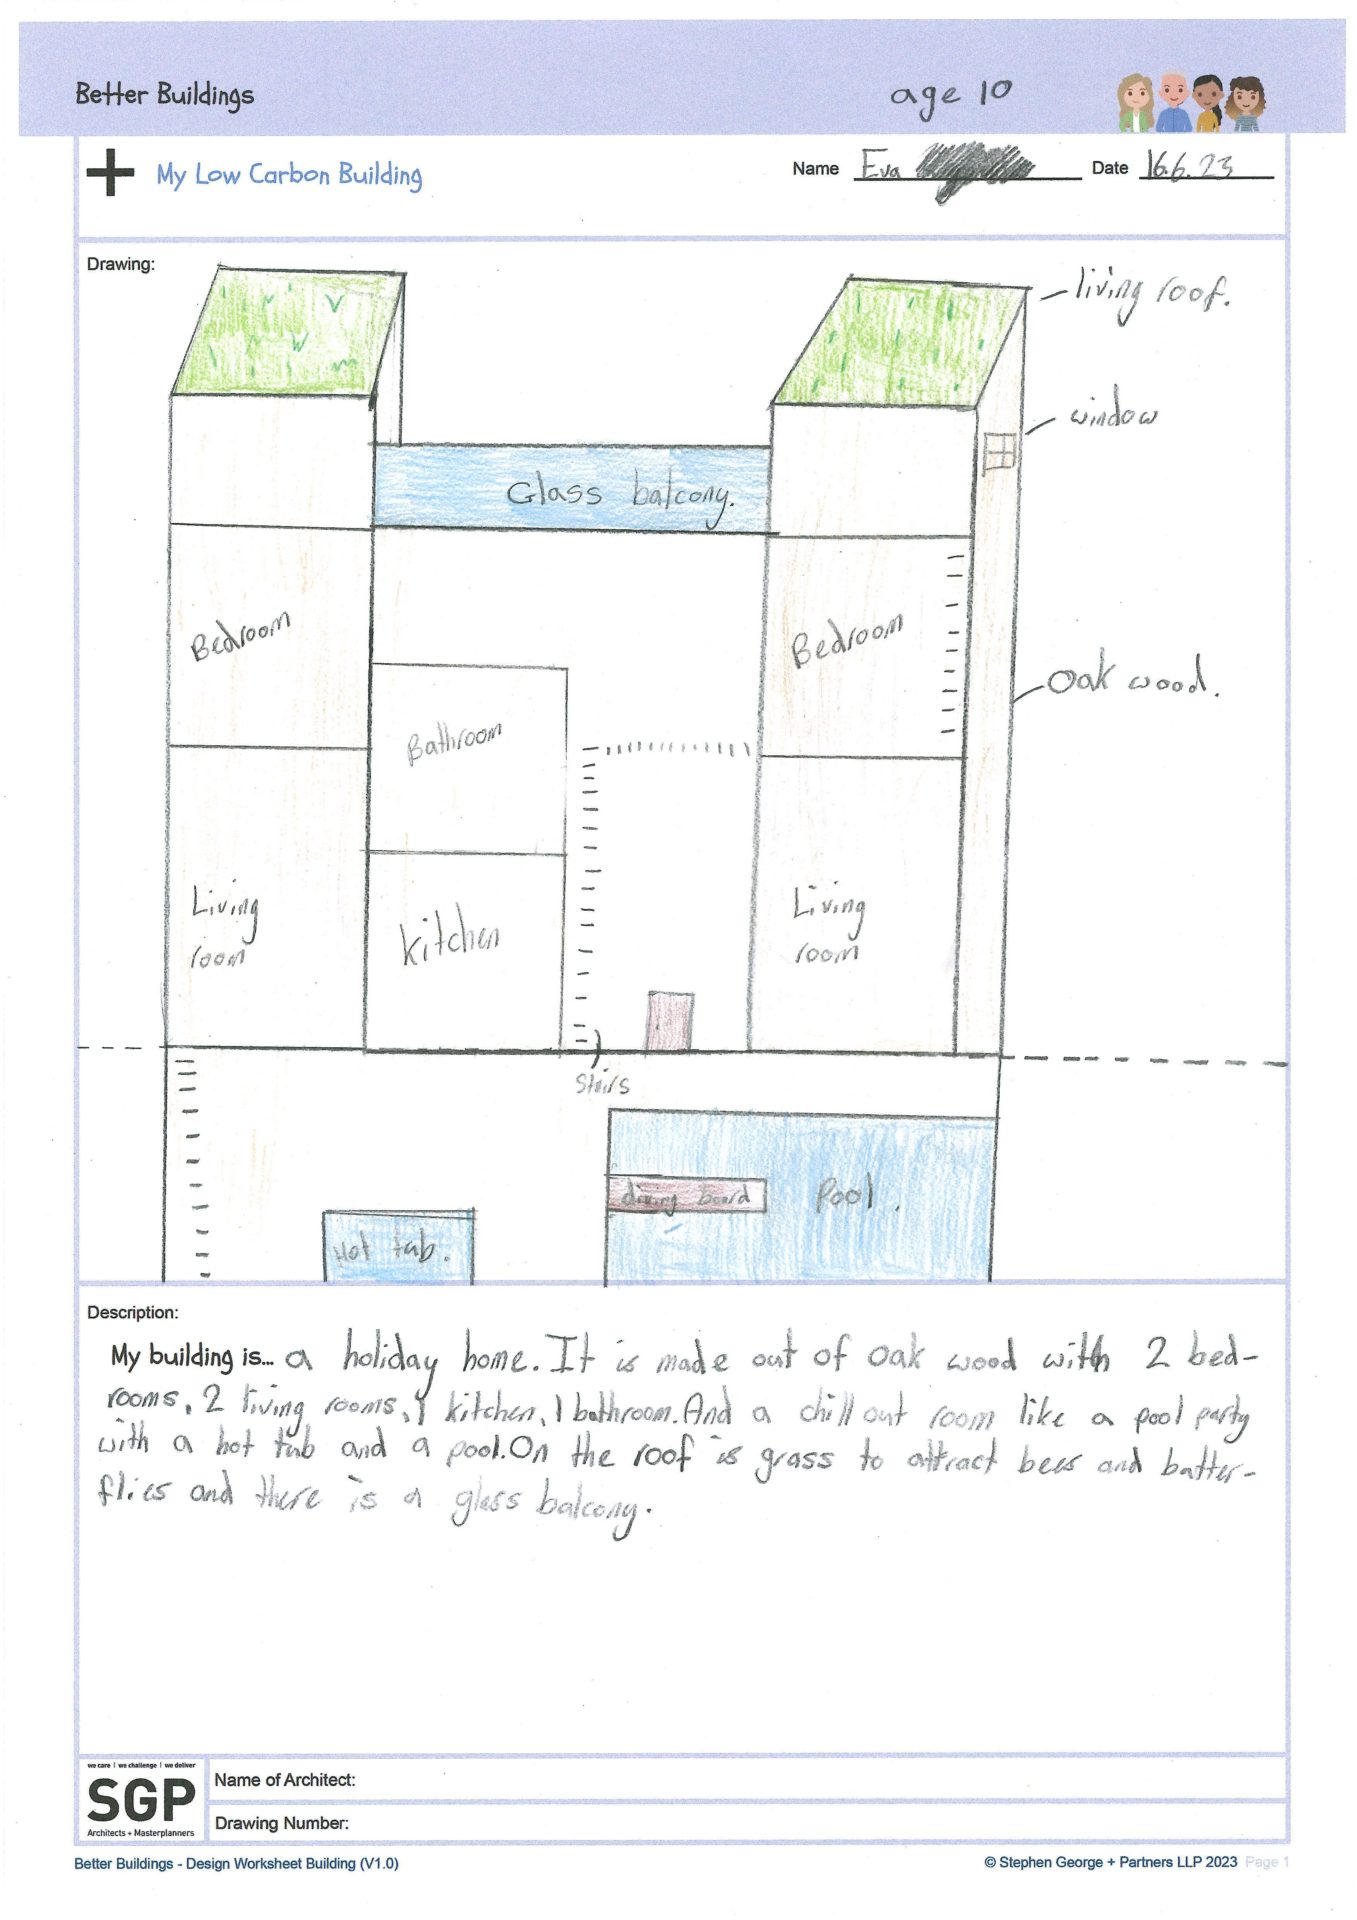 Better Buildings
age 10
My Low Carbon Building
Name Eva
Date 16.6.23
Drawing:
living roof.
window
Glass balcony.
Bedroom
Bedroom
Oak wood.
Bathroom
Living
room
kitchen
Living
room
Stairs
diving board
Pool.
Hot tab.
Description:
My building is... a holiday home. It is made out of oak wood with 2 bed-
rooms, 2 living rooms, 1 kitchen, 1 bathroom. And a chill out room like a pool party
with a hot tub and a pool. On the roof is grass to attract bees and batter-
flies and there is a glass balcony.
we care | we challenge | we deliver
SGP
Architects + Masterplanners
Name of Architect:
Drawing Number:
Better Buildings - Design Worksheet Building (V1.0)
© Stephen George + Partners LLP 2023 Page 1